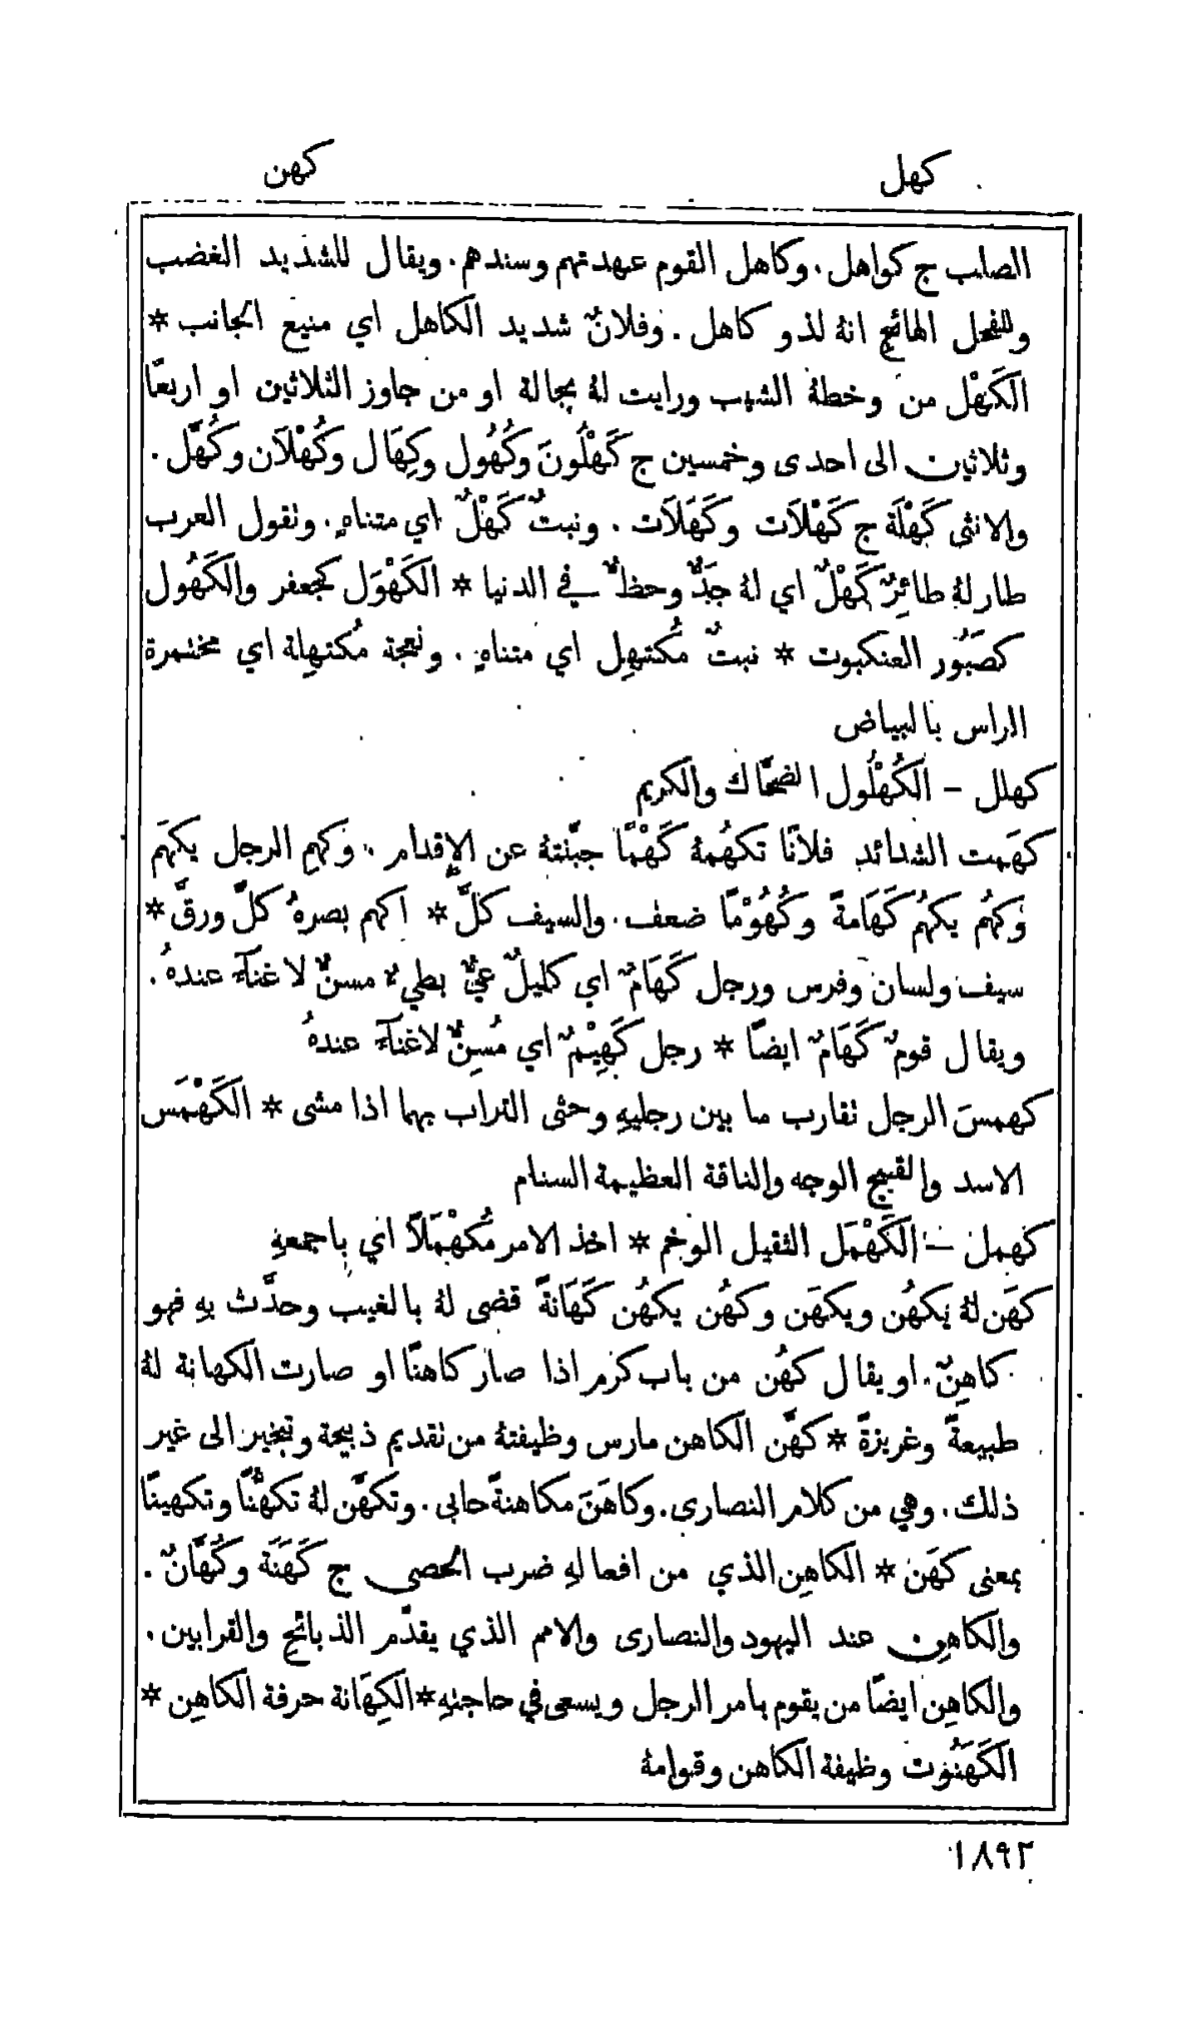 كهل
كهن
الصلب ج كواهل. وكاهل القوم عمدتهم وسندهم. ويقال للشديد الغضب
وللفحل الهائج انهُ لذو كاهل. وفلانٌ شديد الكاهل اي منيع الجانب *
الكَهْل من وخطهُ الشيب ورايت لهُ بجالة او من جاوز الثلاثين او اربعًا
وثلاثين الى احدى وخمسين ج كَهْلُونَ وكُهُول وكِهَال وكُهْلَان وكُهَّل.
والانثى كَهْلَة ج كَهْلَات وكَهَلَات. ونبتٌ كَهْلٌ اي متناهٍ. ونقول العرب
طار لهُ طائِرٌ كَهْلٌ اي لهُ جَدٌّ وحظٌّ في الدنيا * الكَهْوَل كجعفر والكَهُول
كصَبُور العنكبوت * نبتٌ مُكتهِل اي متناهٍ. ونعجة مُكتهِلة اي مختمرة
الراس بالبياض
كهلل – الكُهْلُول الضحَّاك والكريم
كهَمت الشدائد فلانًا تكهُمهُ كَهْمًا جبَّنتهُ عن الإِقدام. وكهم الرجل يكهَم
وكهُم يكهُم كَهَامةً وكُهُوْمًا ضعف. والسيف كلَّ * اكهم بصرهُ كلَّ ورقَّ *
سيف ولسان وفرس ورجل كَهَامٌ اي كليلٌ عيٌّ بطيءٌ مسنٌّ لا غنآءَ عندهُ.
ويقال قومٌ كَهَامٌ ايضًا * رجل كَهِيْمٌ اي مُسِنٌّ لا غنآءَ عندهُ
كهمسَ الرجل نقارب ما بين رجليهِ وحثى التراب بهما اذا مشى * الكَهْمَس
الاسد والقبيح الوجه والناقة العظيمة السنام
كهمل – الكَهْمَل الثقيل الوخم * اخذ الامر مُكَهْمَلًا اي باجمعهِ
كهَن لهُ يكهُن ويكهَن وكهُن يكهُن كَهَانةً قضى لهُ بالغيب وحدَّث بهِ فهو
كاهِنٌ. او يقال كهُن من باب كرم اذا صار كاهنًا او صارت الكهانة لهُ
طبيعةً وغريزةً * كهَّن الكاهن مارس وظيفتهُ من نقديم ذبيحة وتبخير الى غير
ذلك. وهي من كلام النصارى. وكاهَنَ مكاهنةً حابى. وتكهَّن لهُ تكهُّنًا وتكهينًا
بمعنى كهَن * الكاهِن الذي من افعالهِ ضرب الحصى ج كَهَنَة وكُهَّانٌ.
والكاهِن عند اليهود والنصارى والامم الذي يقدّم الذبائح والقرابين.
والكاهِن ايضًا من يقوم بامر الرجل ويسعى في حاجتهِ * الكِهَانة حرفة الكاهِن *
الكَهَنُوت وظيفة الكاهن وقوامهُ
١٨٩٢